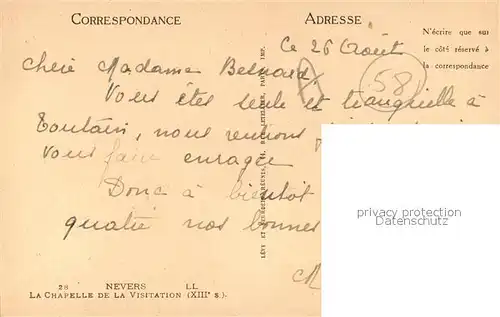 CORRESPONDANCE
ADRESSE
N'écrire que sur
le côté réservé à
la correspondance
Ce 26 Août
Chère Madame Besnard
58
Vous êtes seule et tranquille à
Toutain, nous venons
vous faire enrager
Donc à bientôt
quatre nos bonnes
LÉVY ET NEURDEIN RÉUNIS, 44, RUE LETELLIER, PARIS IMP.
28 NEVERS LL
LA CHAPELLE DE LA VISITATION (XIIIe S.).
privacy protection
Datenschutz